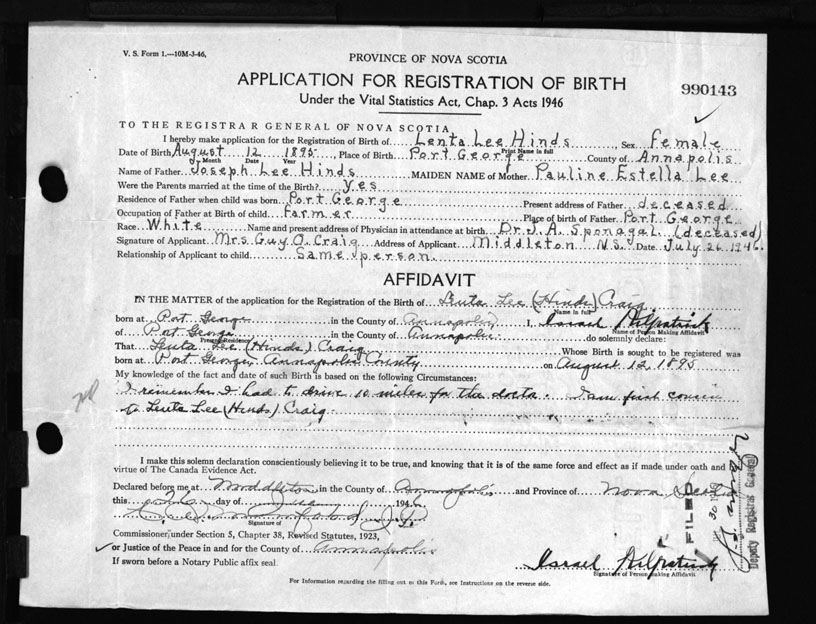 V. S. Form 1.—10M-3-46.
PROVINCE OF NOVA SCOTIA
APPLICATION FOR REGISTRATION OF BIRTH
990143
Under the Vital Statistics Act, Chap. 3 Acts 1946
TO THE REGISTRAR GENERAL OF NOVA SCOTIA
I hereby make application for the Registration of Birth of Lenta Lee Hinds, Sex Female
Print Name in full
Date of Birth August 12 1895, Place of Birth Port George County of Annapolis
Month Date Year
Name of Father Joseph Lee Hinds MAIDEN NAME of Mother Pauline Estella Lee
Were the Parents married at the time of the Birth? Yes
Residence of Father when child was born Port George Present address of Father deceased
Occupation of Father at Birth of child farmer Place of birth of Father Port George
Race White Name and present address of Physician in attendance at birth Dr. J. A. Sponagal (deceased)
Signature of Applicant Mrs Guy O. Craig Address of Applicant Middleton N.S. Date July 26 1946.
Relationship of Applicant to child Same person.
AFFIDAVIT
IN THE MATTER of the application for the Registration of the Birth of Lenta Lee (Hinds) Craig
Name in full
born at Port George in the County of Annapolis I, Israel Kilpatrick
Name of Person Making Affidavit
of Port George in the County of Annapolis do solemnly declare:
Present Residence
That Lenta Lee (Hinds) Craig Whose Birth is sought to be registered was
born at Port George, Annapolis County on August 12, 1895
My knowledge of the fact and date of such Birth is based on the following Circumstances:
I remember I had to drive 10 miles for the doctor. I am first cousin
to Lenta Lee (Hinds) Craig
I make this solemn declaration conscientiously believing it to be true, and knowing that it is of the same force and effect as if made under oath and by
virtue of The Canada Evidence Act.
Declared before me at Middleton in the County of Annapolis and Province of Nova Scotia
this day of 194
Signature of
Commissioner under Section 5, Chapter 38, Revised Statutes, 1923,
or Justice of the Peace in and for the County of Annapolis
If sworn before a Notary Public affix seal.
Israel Kilpatrick
Signature of Person making Affidavit
For Information regarding the filling out of this Form, see Instructions on the reverse side.
FILED
30
Deputy Registrar General